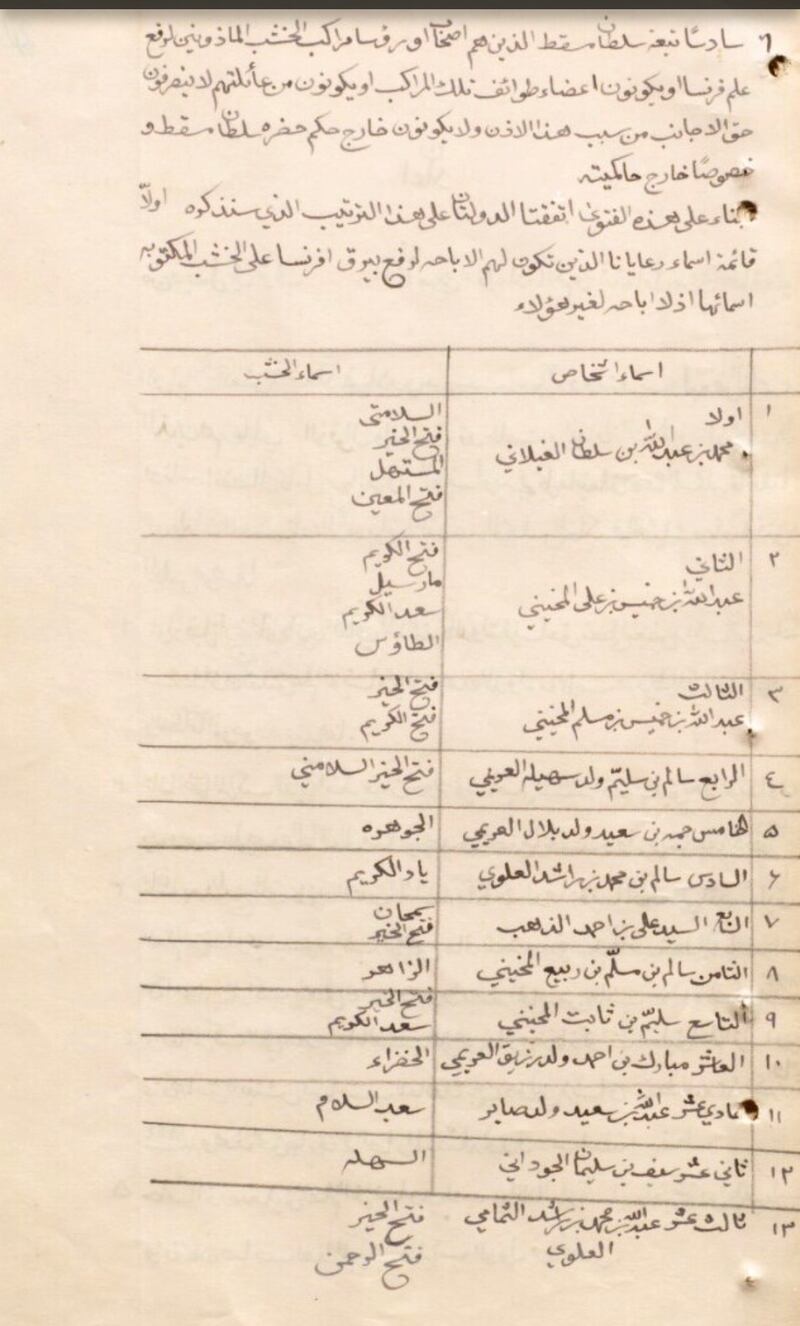 ٦ سادسًا تبعة سلطان مسقط الذين هم اصحاب او رؤسا مراكب الخشب الماذونين لرفع
علم فرنسا او يكونون اعضاء طوائف تلك المراكب او يكونون من عائلتهم لا يتصرفون
حق الاجانب من سبب هذا الاذن ولا يكونون خارج حكم حضره سلطان مسقط و
خصوصًا خارج حاكميته
بناء على هذه الفتوى اتفقتا الدولتان على هذا الترتيب الذي سنذكره اولًا
قائمة اسماء رعايانا الذين تكون لهم الاباحه لرفع بيرق افرنسا على الخشب المكتوبه
اسمائها اذ لا اباحه لغير هؤلاء
اسماء اشخاص اسماء الخشب
١ اولا
محمد بن عبدالله بن سلطان الغيلاني
السلامتى
فتح الخير
المستهل
فتح المعين
٢ الثاني
عبدالله بن خميس بن على المخيني
فتح الكريم
مارسيل
سعد الكريم
الطاؤس
٣ الثالث
عبدالله بن خميس بن مسلم المخيني
فتح الخير
فتح الكريم
٤ الرابع سالم بن سليّم ولد سهيله العريمي فتح الخير السلامتي
٥ الخامس جمعه بن سعيد ولد بلال العريمي الجوهره
٦ السادس سالم بن محمد بن راشد العلوي ياد الكريم
٧ السابع السيد على بن احمد الذهب
سمحان
فتح الخير
٨ الثامن سالم بن مسلّم بن ربيع المخيني الزاهر
٩ التاسع سليّم بن ثابت المخيني
فتح الخير
سعد الكريم
١٠ العاشر مبارك بن احمد ولد رزيق العريمي الخضراء
١١ حادي عشر عبدالله بن سعيد ولد صابر سعد السلام
١٢ ثاني عشر سيف بن سليمان الجوداني السهله
١٣ ثالث عشر عبدالله بن محمد بن راشد التمامي
العلوي
فتح الخير
فتح الرحمن